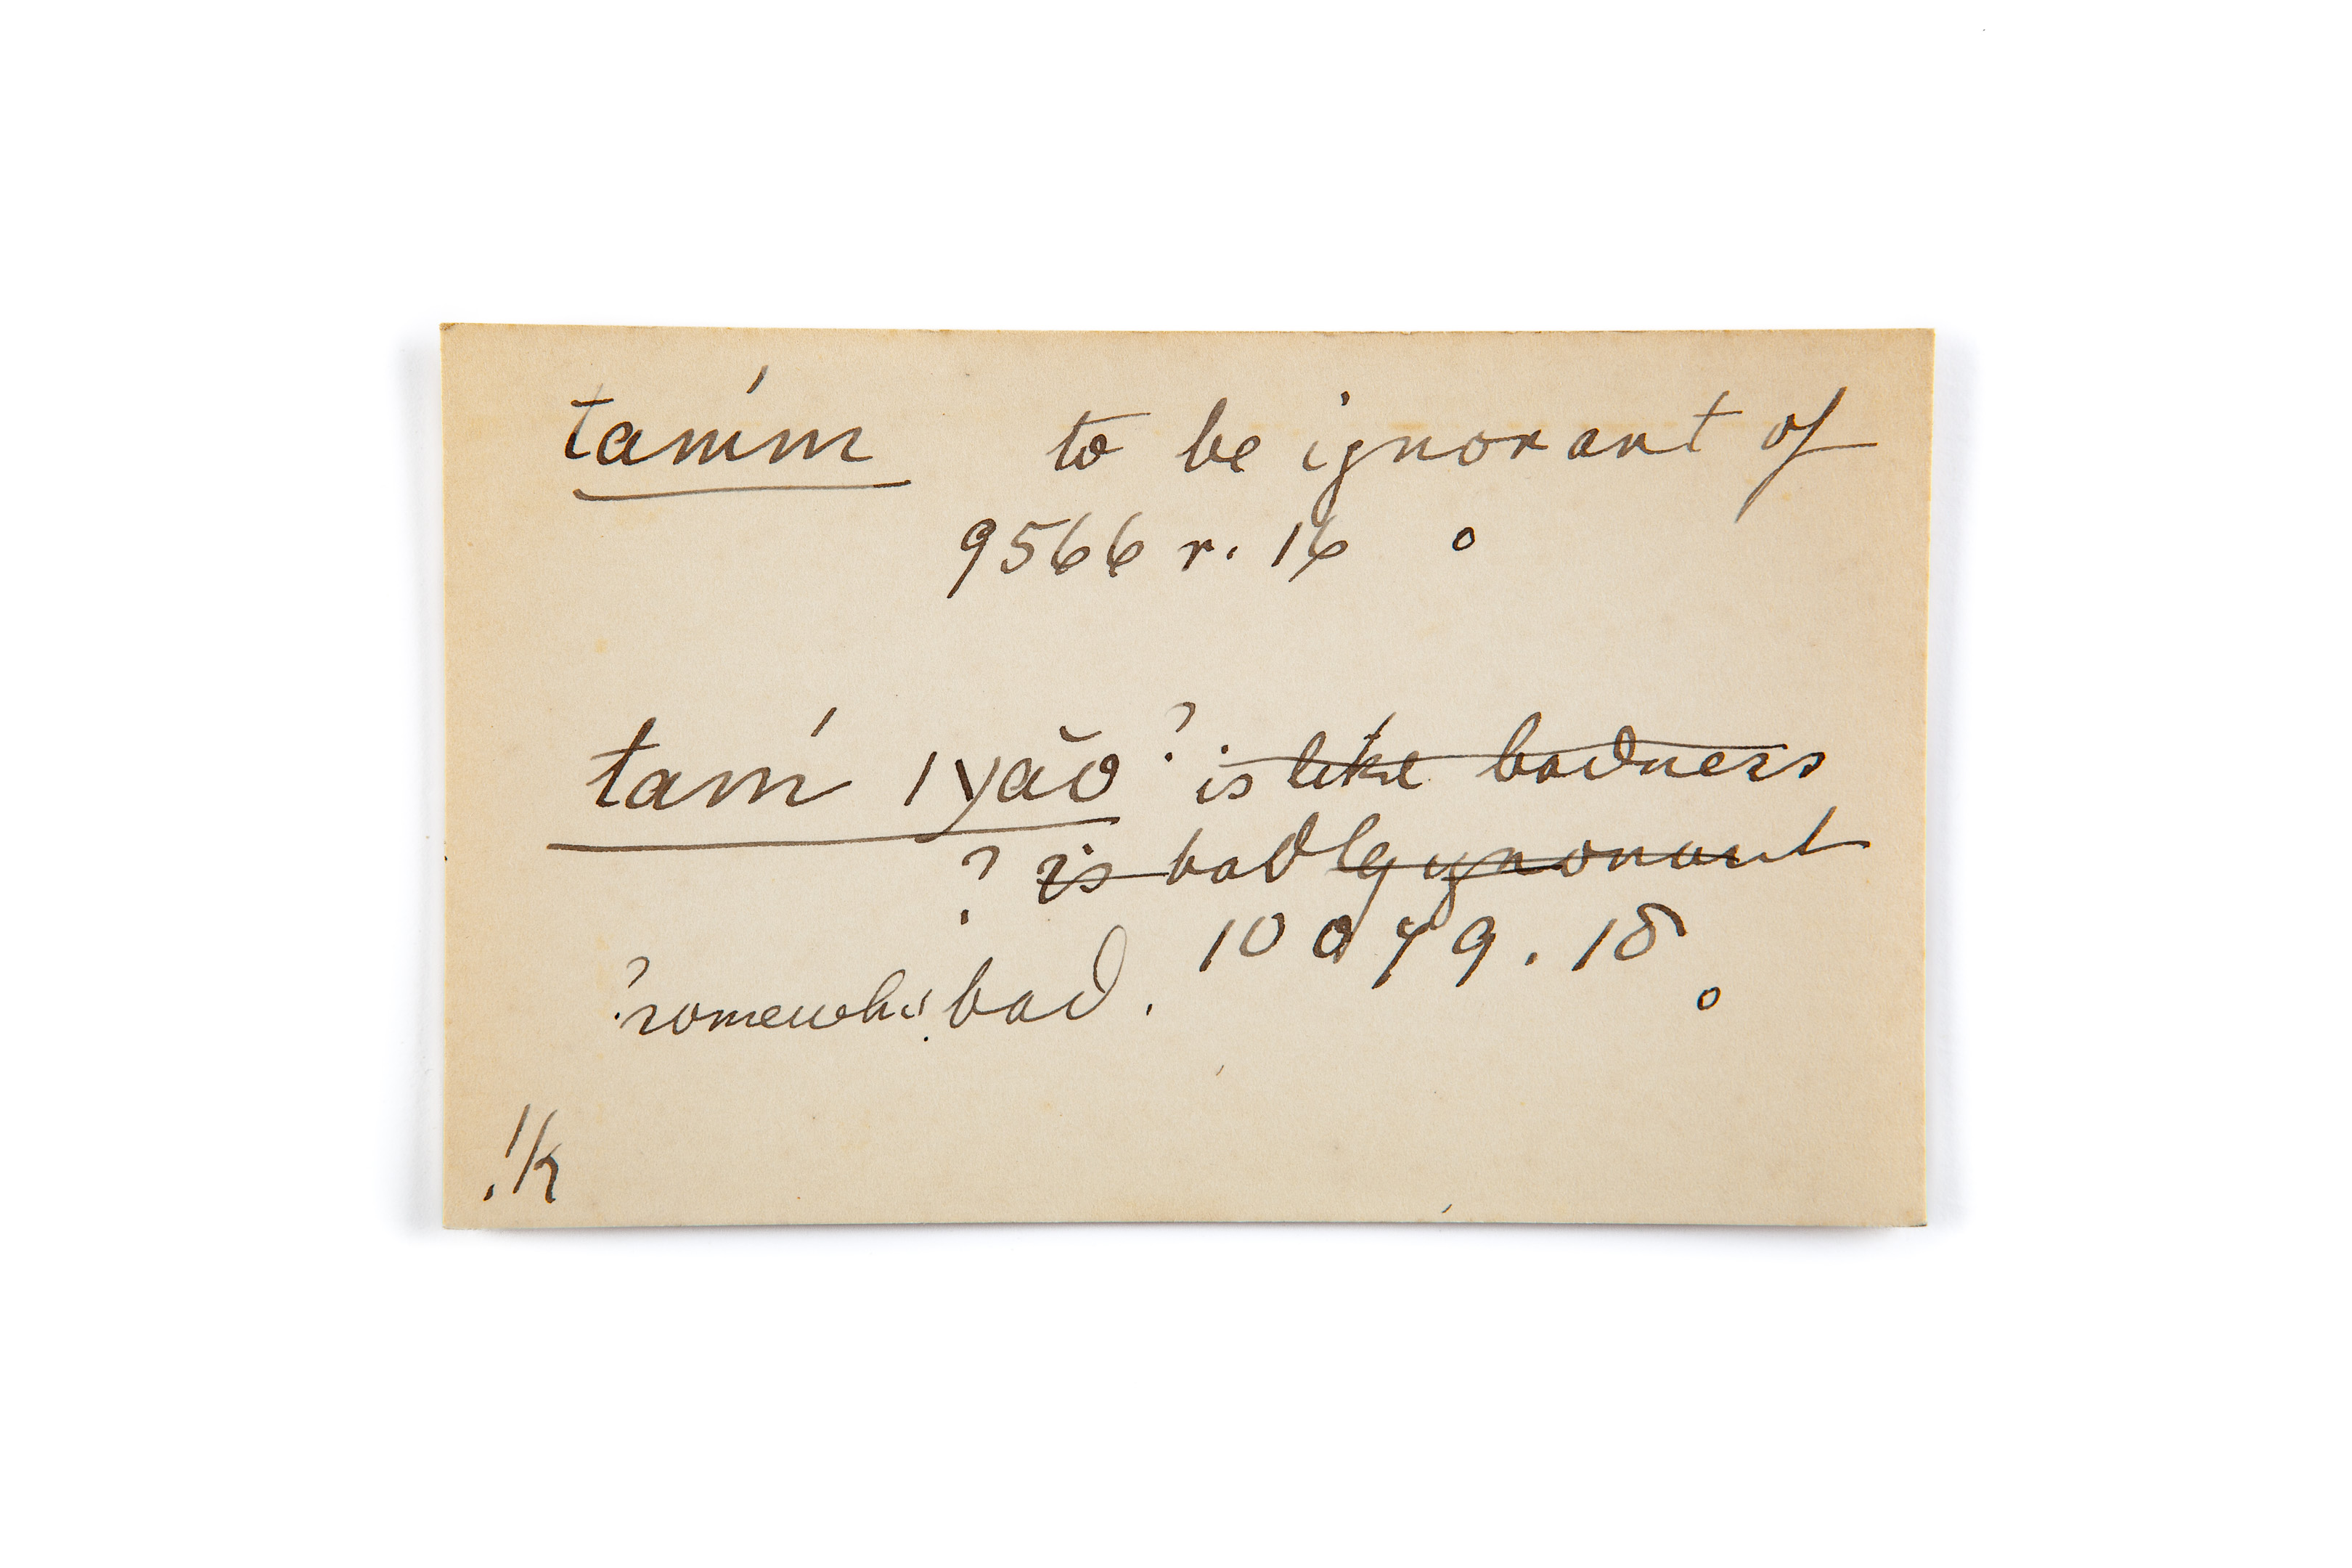 tam'm to be ignorant of
9566 r. 16 o
tam' |yăo ? is like badness
? is badly ignorant
10079.18
? somewhat bad. o
!k